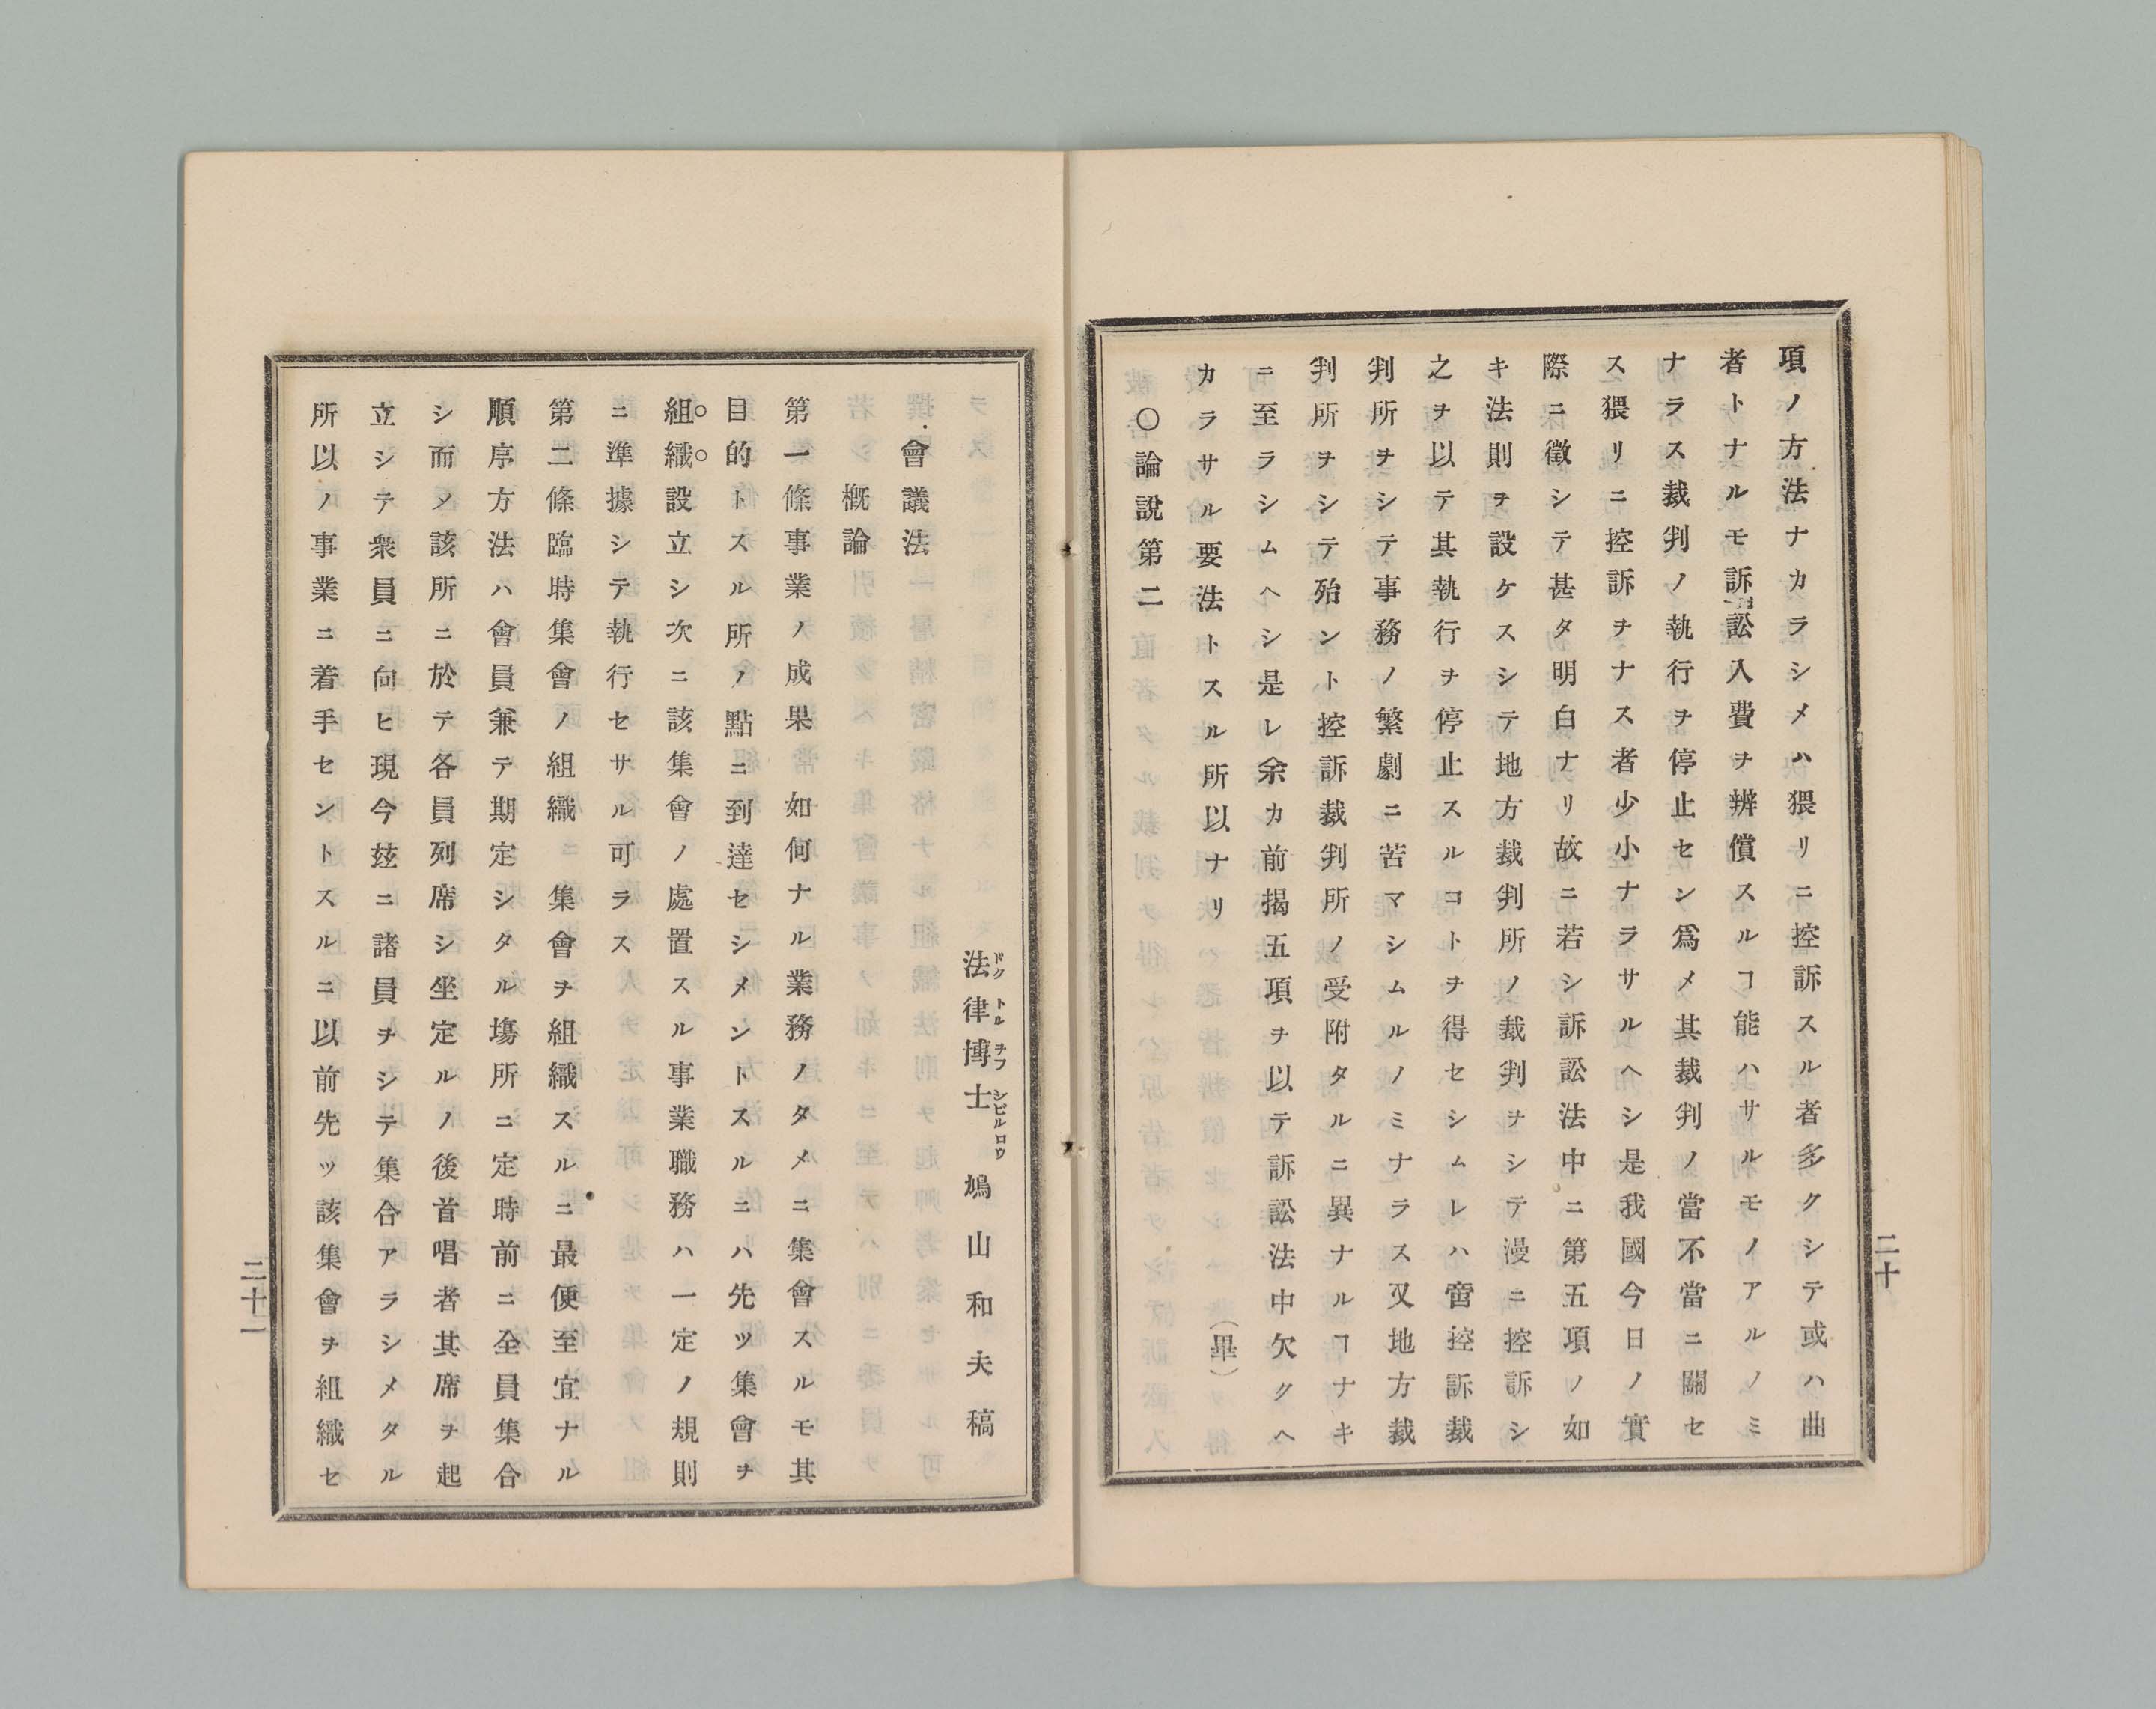 項ノ方法ナカラシメハ猥リニ控訴スル者多クシテ或ハ曲
者トナルモ訴訟入費ヲ辨償スルヿ能ハサルモノアルノミ
ナラス裁判ノ執行ヲ停止セン爲メ其裁判ノ當不當ニ關セ
ス猥リニ控訴ヲナス者少小ナラサルヘシ是我國今日ノ實
際ニ徵シテ甚タ明白ナリ故ニ若シ訴訟法中ニ第五項ノ如
キ法則ヲ設ケスシテ地方裁判所ノ裁判ヲシテ漫ニ控訴シ
之ヲ以テ其執行ヲ停止スルコトヲ得セシムレハ啻控訴裁
判所ヲシテ事務ノ繁劇ニ苦マシムルノミナラス又地方裁
判所ヲシテ殆ント控訴裁判所ノ受附タルニ異ナルヿナキ
ニ至ラシムヘシ是レ余カ前揭五項ヲ以テ訴訟法中欠クヘ
カラサル要法トスル所以ナリ
（畢）
〇論說第二
二十
法律博士 鳩山和夫稿
ドクトルヲフシビルロウ
會議法
槪論
第一條事業ノ成果如何ナル業務ノタメニ集會スルモ其
目的トスル所ノ點ニ到達セシメントスルニハ先ツ集會ヲ
組織設立シ次ニ該集會ノ處置スル事業職務ハ一定ノ規則
ニ準據シテ執行セサル可ラス
第二條臨時集會ノ組織 集會ヲ組織スルニ最便至宜ナル
順序方法ハ會員兼テ期定シタル塲所ニ定時前ニ全員集合
シ而メ該所ニ於テ各員列席シ坐定ルノ後首唱者其席ヲ起
立シテ衆員ニ向ヒ現今玆ニ諸員ヲシテ集合アラシメタル
所以ノ事業ニ着手セントスルニ以前先ツ該集會ヲ組織セ
二十一